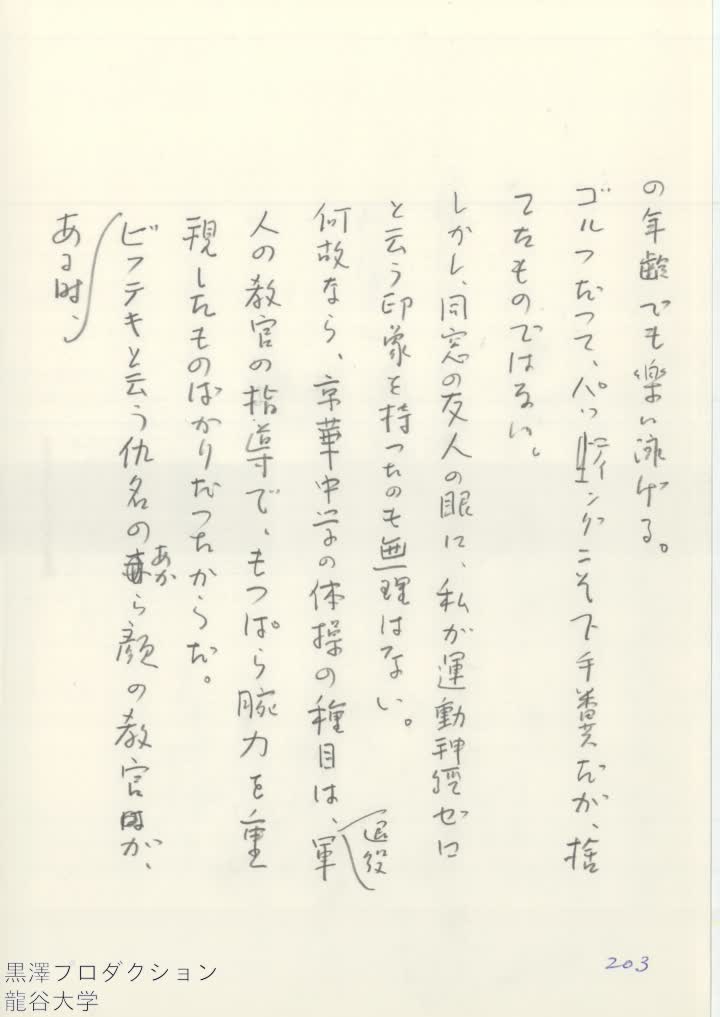 の年齢でも樂に泳げる。
ゴルフだつて、パッティングこそ下手糞だが、捨
てたものではない。
しかし、同窓の友人の眼に、私が運動神経ゼロ
と云う印象を持つたのも無理はない。
何故なら、京華中学の体操の種目は、退役軍
人の教官の指導で、もつぱら腕力を重
視したものばかりだつたからだ。
ビフテキと云う仇名の赤ら顔の教官が、
あか
ある時、
203
黒澤プロダクション
龍谷大学